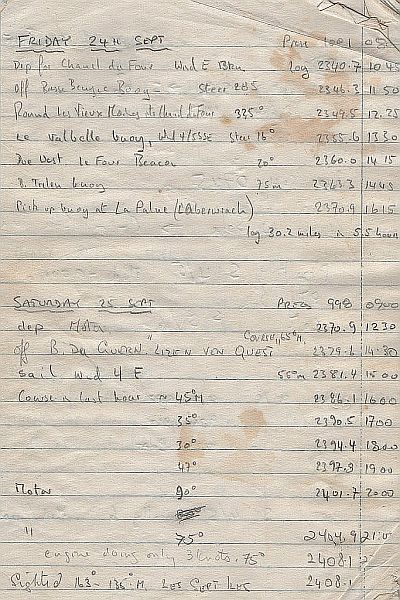 FRIDAY 24th SEPT Press 1001 05
Dep for Chanel du Four Wind E Bkn Log 2340.7 1045
off Buoy 2346.3 1150
Round Les Vieux Moines 335° 2349.5 1225
Le Valbelle buoy, Wd 4/5 SSE Steer 16° 2355.6 1330
Due West Le Four Beacon 20° 2360.0 1415
B. buoy 75m 2363.3 1445
Pick up buoy at La Palue (L'Aberwrach) 2370.9 1615
log 30.2 miles in 5.5 hours
SATURDAY 25 SEPT PRESS 998 0900
dep Motor 2370.9 1230
off B. COURSE 65°M 2379.6 1430
sail wnd 4 E 55°m 2381.4 1500
Course in last hour ~ 45°M 2386.1 1600
35° 2390.5 1700
30° 2394.4 1800
47° 2397.8 1900
Motor 90° 2401.7 2000
" 75° 2404.9 21:0
engine doing only 3 knots. 75° 2408.1
Sighted 163° - 135°M, LES SEPT ILES 2408.1